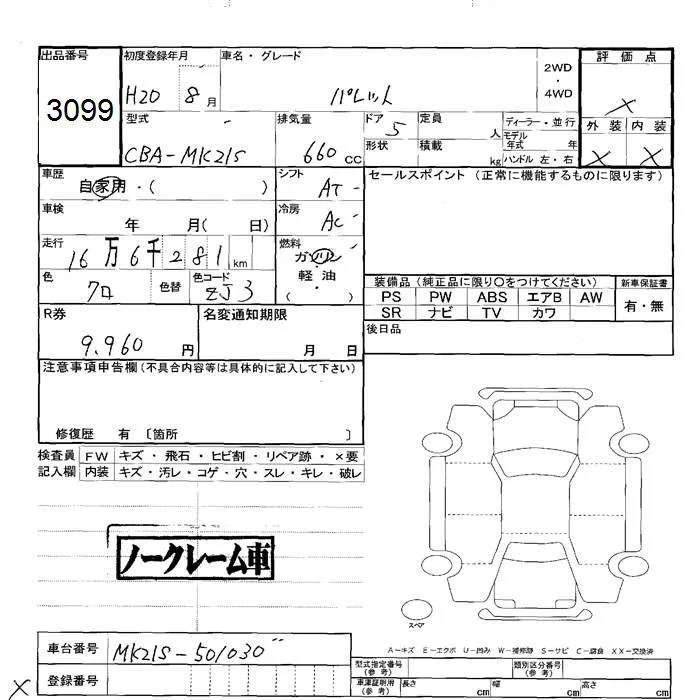 出品番号 初度登録年月 車名・グレード 2WD ・ 4WD 評価点
3099 H20 8月 パレット ×
型式 排気量 ドア 定員 ディーラー・並行 外装 内装
CBA-MK21S 660cc 5 人 モデル年式 年 × ×
形状 積載 kg ハンドル 左・右
車歴 自家用・( ) シフト AT セールスポイント (正常に機能するものに限ります)
車検 年 月( 日) 冷房 AC
走行 16万6千281km 燃料 ガソリン・軽油 ( )
色 クロ 色替 色コード ZJ3
装備品 (純正品に限り〇をつけてください) 新車保証書
PS PW ABS エアB AW 有・無
SR ナビ TV カワ
R券 名変通知期限 後日品
9.960円 月 日
注意事項申告欄 (不具合内容等は具体的に記入して下さい)
修復歴 有 〔箇所 〕
検査員 FW キズ・飛石・ヒビ割・リペア跡・×要
記入欄 内装 キズ・汚レ・コゲ・穴・スレ・キレ・破レ
ノークレーム車
スペア
A－キズ E－エクボ U－凹み W－補修跡 S－サビ C－腐食 XX－交換済
車台番号 MK21S-501030
登録番号
型式指定番号 (参考) 類別区分番号 (参考)
車庫証明用 (参考) 長さ cm 幅 cm 高さ cm
×